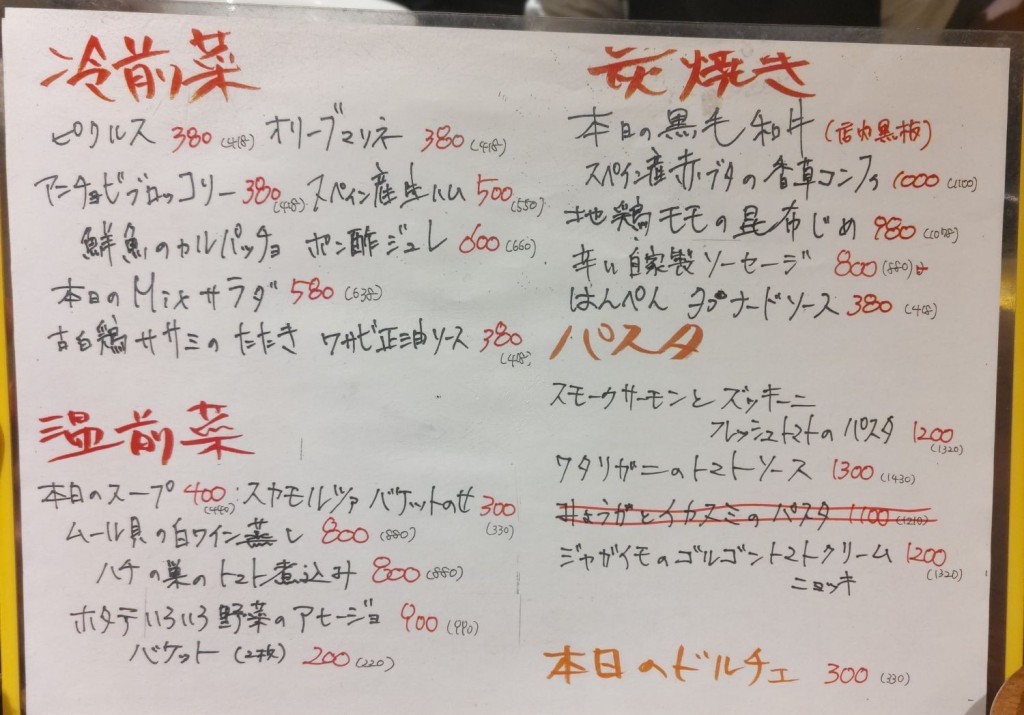 冷前菜
ピクルス 380(418) オリーブマリネ 380(418)
アンチョビブロッコリー 380(418) スペイン産生ハム 500(550)
鮮魚のカルパッチョ ポン酢ジュレ 600(660)
本日のMixサラダ 580(638)
古白鶏ササミのたたき ワサビ正油ソース 380(418)
温前菜
本日のスープ 400(440) スカモルツァ バケットのせ 300(330)
ムール貝の白ワイン蒸し 800(880)
ハチの巣のトマト煮込み 800(880)
ホタテいろいろ野菜のアヒージョ 900(990)
バケット(2枚) 200(220)
炭焼き
本日の黒毛和牛 (店内黒板)
スペイン産赤ブタの香草コンフィ 1000(1100)
地鶏モモの昆布じめ 980(1078)
辛い自家製ソーセージ 800(880)
はんぺん タプナードソース 380(418)
パスタ
スモークサーモンとズッキーニ
フレッシュトマトのパスタ 1200(1320)
ワタリガニのトマトソース 1300(1430)
イカスミのパスタ 1100(1210)
ジャガイモのゴルゴントマトクリーム 1200(1320)
ニョッキ
本日のドルチェ 300(330)